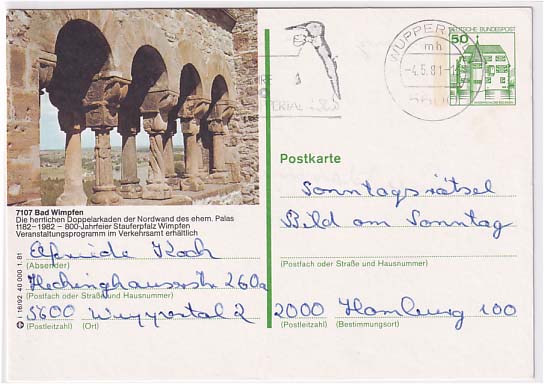 WUPPERTAL
mh
-4.5.81-1
DEUTSCHE BUNDESPOST
50
7107 Bad Wimpfen
Die herrlichen Doppelarkaden der Nordwand des ehem. Palas
1182-1982 - 800-Jahrfeier Stauferpfalz Wimpfen
Veranstaltungsprogramm im Verkehrsamt erhältlich
Elfriede Koch
(Absender)
Heckinghauserstr 260a
(Postfach oder Straße und Hausnummer)
5600 Wuppertal 2
(Postleitzahl) (Ort)
I 16/92 40 000 1.81
Postkarte
Sonntagsrätsel
Bild am Sonntag
(Postfach oder Straße und Hausnummer)
2000 Hamburg 100
(Postleitzahl) (Bestimmungsort)